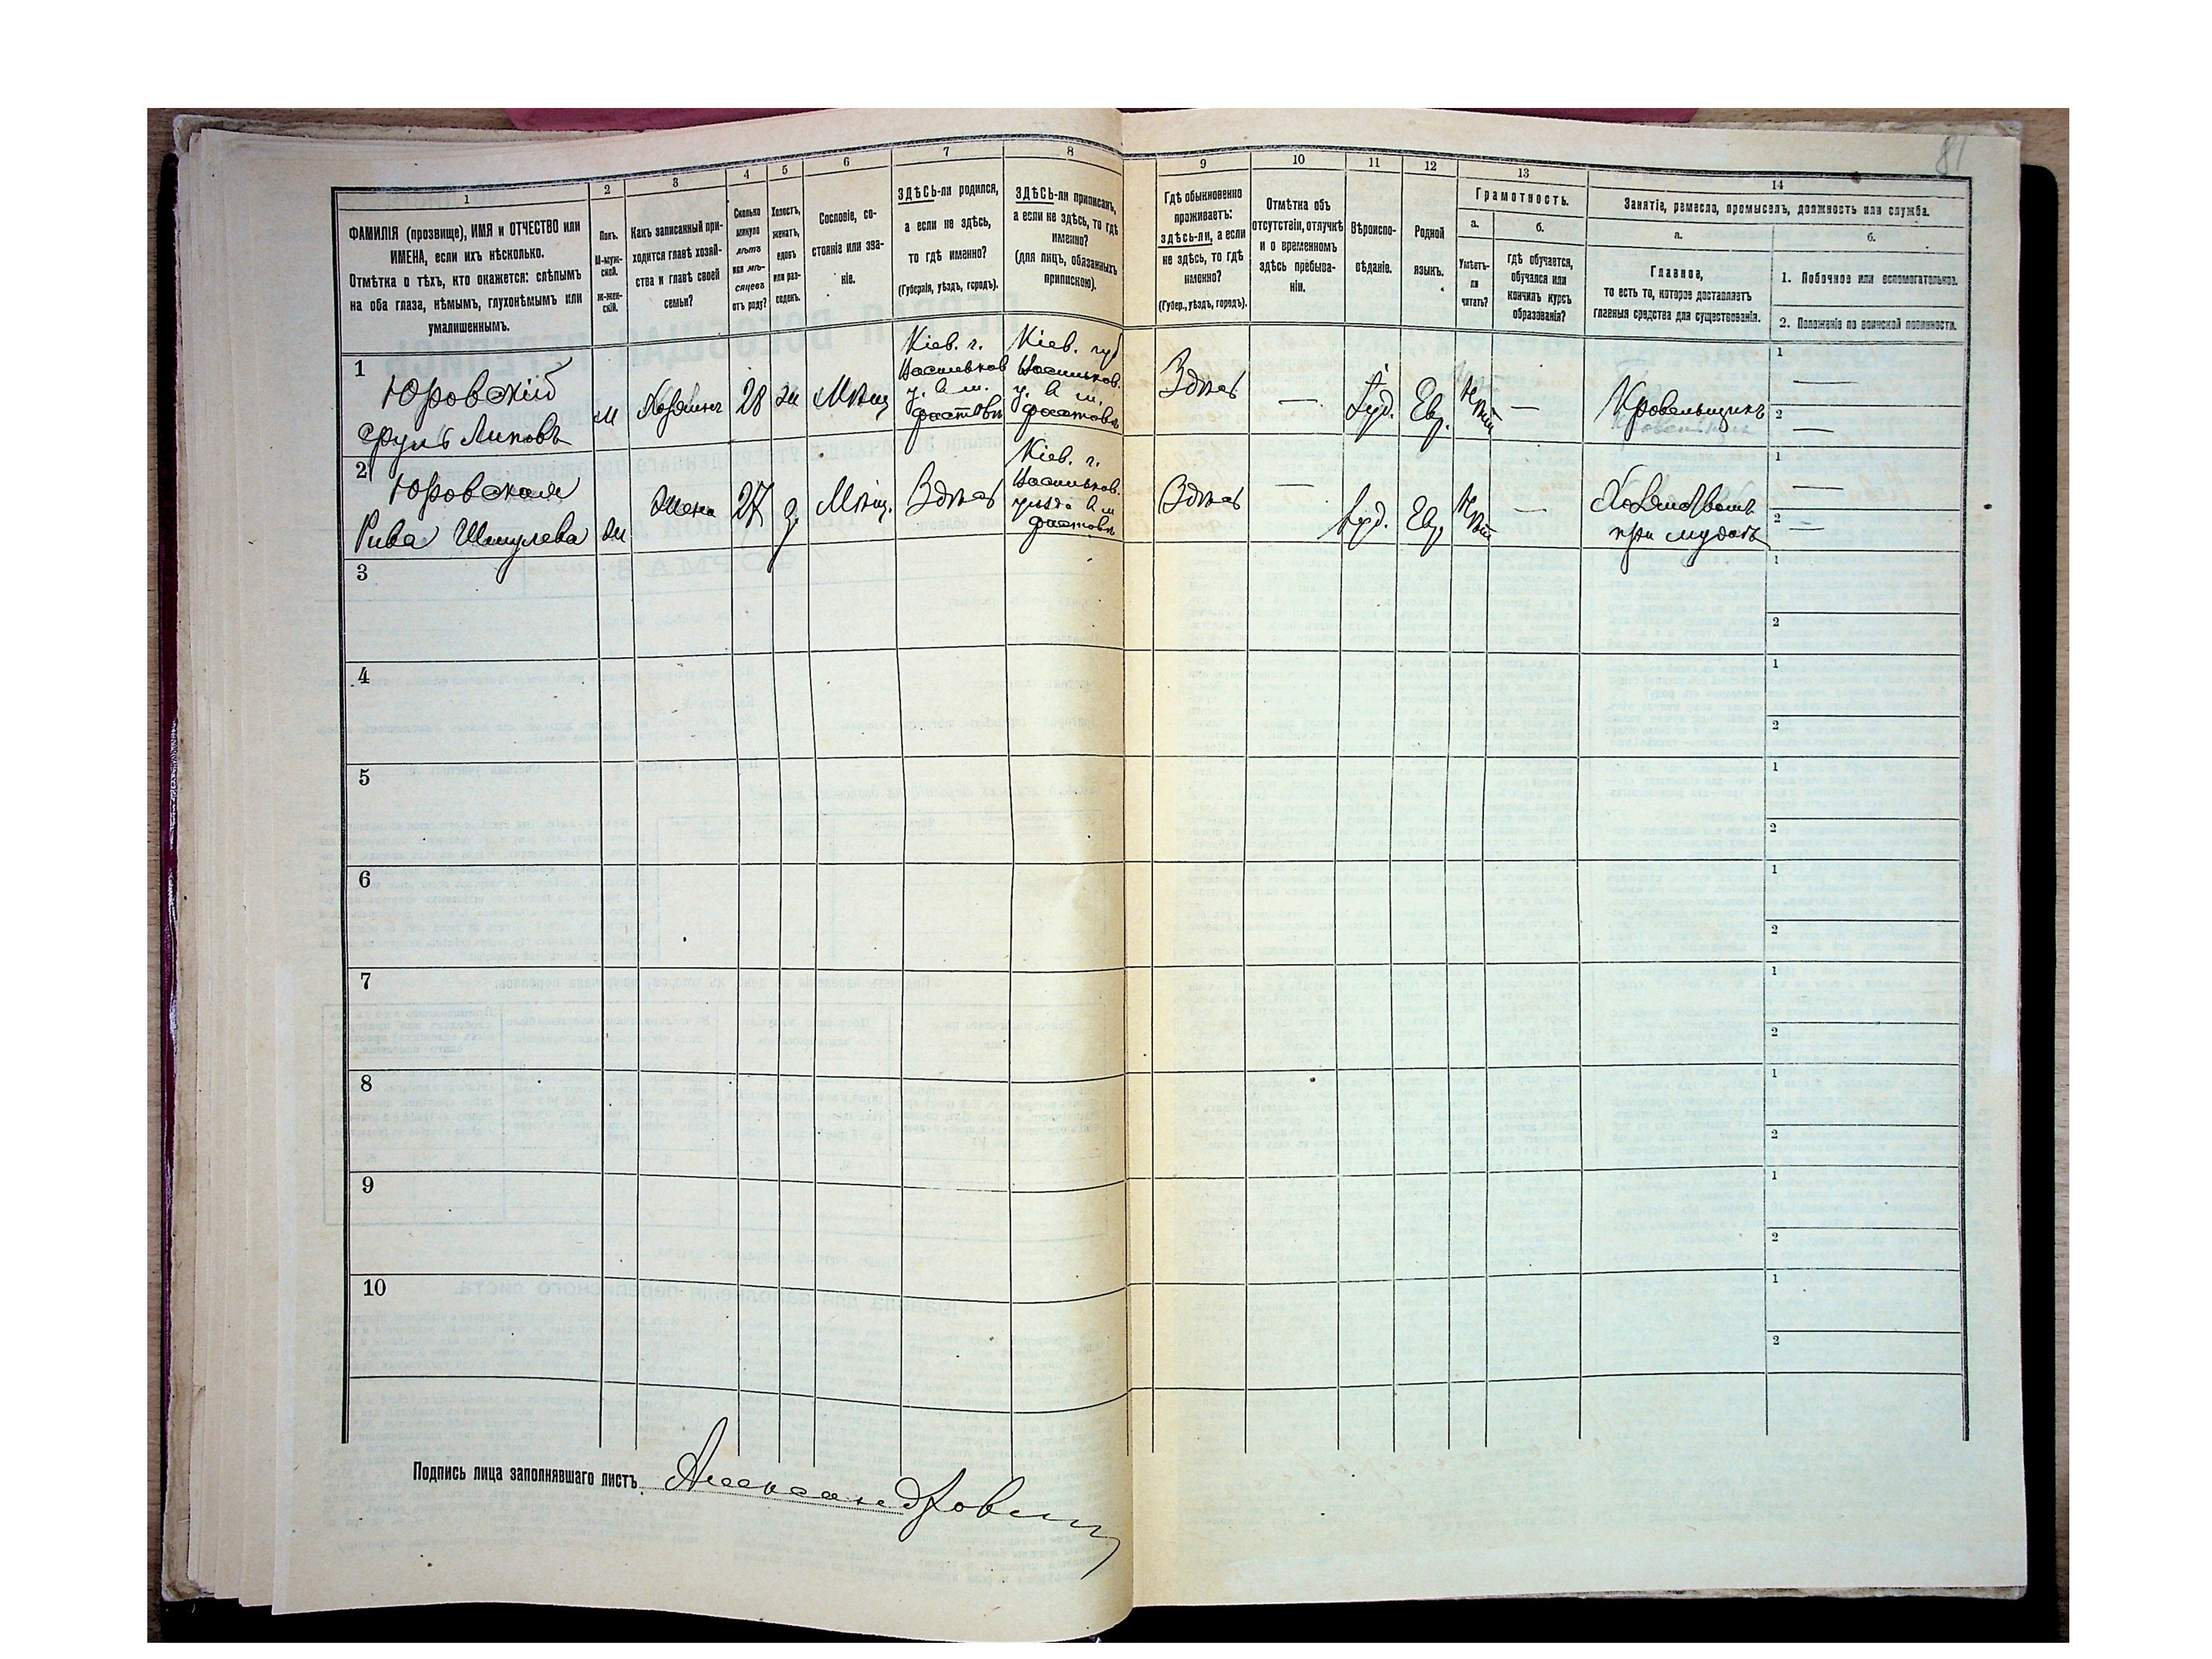 81
1
2
3
4
5
6
7
8
9
10
11
12
13
14
ФАМИЛІЯ (прозвище), ИМЯ и ОТЧЕСТВО или
ИМЕНА, если ихъ нѣсколько.
Отмѣтка о тѣхъ, кто окажется: слѣпымъ
на оба глаза, нѣмымъ, глухонѣмымъ или
умалишеннымъ.
Полъ.
М-муж-
ской.
Ж-жен-
скій.
Какъ записанный при-
ходится главѣ хозяй-
ства и главѣ своей
семьи?
Сколько
минуло
лѣтъ
или мѣ-
сяцевъ
отъ роду?
Холостъ,
женатъ,
вдовъ
или раз-
веденъ.
Сословіе, со-
стояніе или зва-
ніе.
ЗДѢСЬ-ли родился,
а если не здѣсь,
то гдѣ именно?
(Губернія, уѣздъ, городъ).
ЗДѢСЬ-ли приписанъ,
а если не здѣсь, то гдѣ
именно?
(для лицъ, обязанныхъ
припискою).
Гдѣ обыкновенно
проживаетъ:
здѣсь-ли, а если
не здѣсь, то гдѣ
именно?
(Губер., уѣздъ, городъ).
Отмѣтка объ
отсутствіи, отлучкѣ
и о временномъ
здѣсь пребыва-
ніи.
Вѣроиспо-
вѣданіе.
Родной
языкъ.
Грамотность.
а.
Умѣетъ-
ли
читать?
б.
гдѣ обучается,
обучался или
кончилъ курсъ
образованія?
Занятіе, ремесло, промыселъ, должность или служба.
а.
Главное,
то есть то, которое доставляетъ
главныя средства для существованія.
б.
1. Побочное или вспомогательное.
2. Положеніе по воинской повинности.
1
Юровскій
Сруль Липовъ
м
Хозяинъ
28
ж
Мѣщ
Кіев. г.
Васильков
у. в м.
Фастовѣ
Кіев. губ
Васильков.
у. в м.
Фастовѣ
Здѣсь
—
Іуд.
Евр.
Нѣт
—
Кровельщикъ
1
—
2
—
2
Юровская
Рива Шмулева
ж
Жена
27
з.
Мѣщ.
Здѣсь
Кіев. г.
Васильков.
уѣзд. в м
Фастовѣ
Здѣсь
—
Іуд.
Евр.
Нѣт
—
при мужѣ
1
—
2
—
3
1
2
4
1
2
5
1
2
6
1
2
7
1
2
8
1
2
9
1
2
10
1
2
Подпись лица заполнявшаго листъ